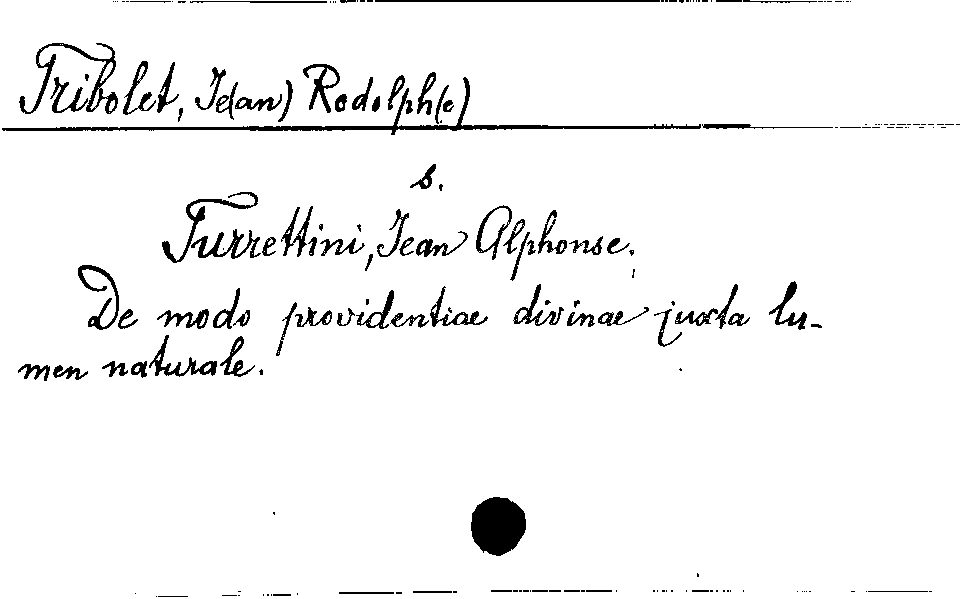 Tribolet, Je(an) Rodolph(e)
s.
Turrettini, Jean Alphonse.
De modo providentiae divinae juxta lu-
men naturale.